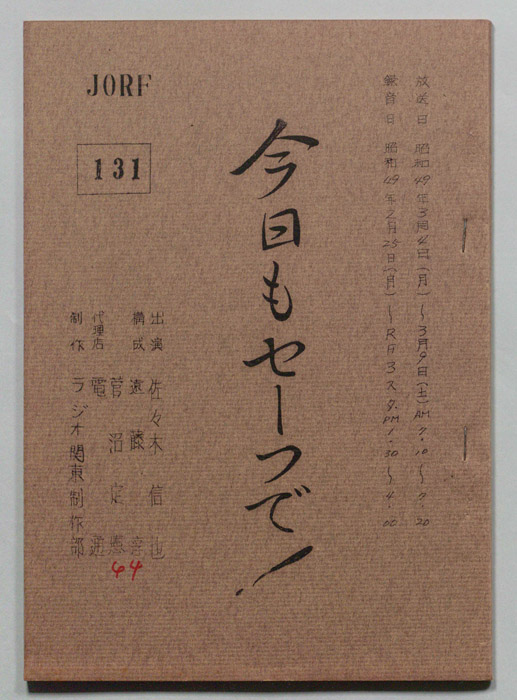 JORF
131
放送日 昭和49年3月4日(月)〜3月9日(土)AM7.10〜7.20
録音日 昭和49年2月25日(月)〜RFB3スタ.PM1.30〜4.00
今日もセーフで!
出演 佐々木信也
構成 遠藤
菅沼定憲
代理店 電通
制作 ラジオ関東制作部
44